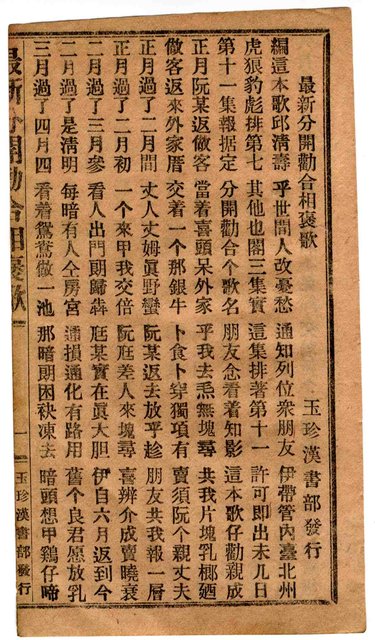 最新分開勸合相褒歌
玉珍漢書部發行
編這本歌邱淸壽 乎世間人改憂愁 通知列位衆朋友 伊帶管內臺北州
虎狼豹彪排第七 其他也閣三集實 這集排著第十一 許可即出未几日
第十一集報据定 分開勸合个歌名 朋友念看着知影 這本歌仔勸親成
正月阮某返做客 當着喜頭呆外家 乎我去㤆無塊尋 共我片塊乳榔廼
做客返來外家厝 交着一个那銀牛 卜食卜穿獨項有 賣須阮个親丈夫
正月過了二月間 丈人丈姆眞野蠻 阮某返去放乎趁 朋友共我報一層
正月過了二月初 一个來甲我交倍 阮尫差人來塊尋 喜辨介成賣曉衰
二月過了三月參 看人出門朗歸犇 尫某實在眞大胆 伊自六月返到今
二月過了是淸明 每暗有人仝房宮 通損通化有路用 舊个良君愿放乳
三月過了四月四 看着鴛鴦做一池 那暗朗困袂凍去 暗頭想甲鷄仔啼
最新分開勸合相褒歌
一
玉珍漢書部發行